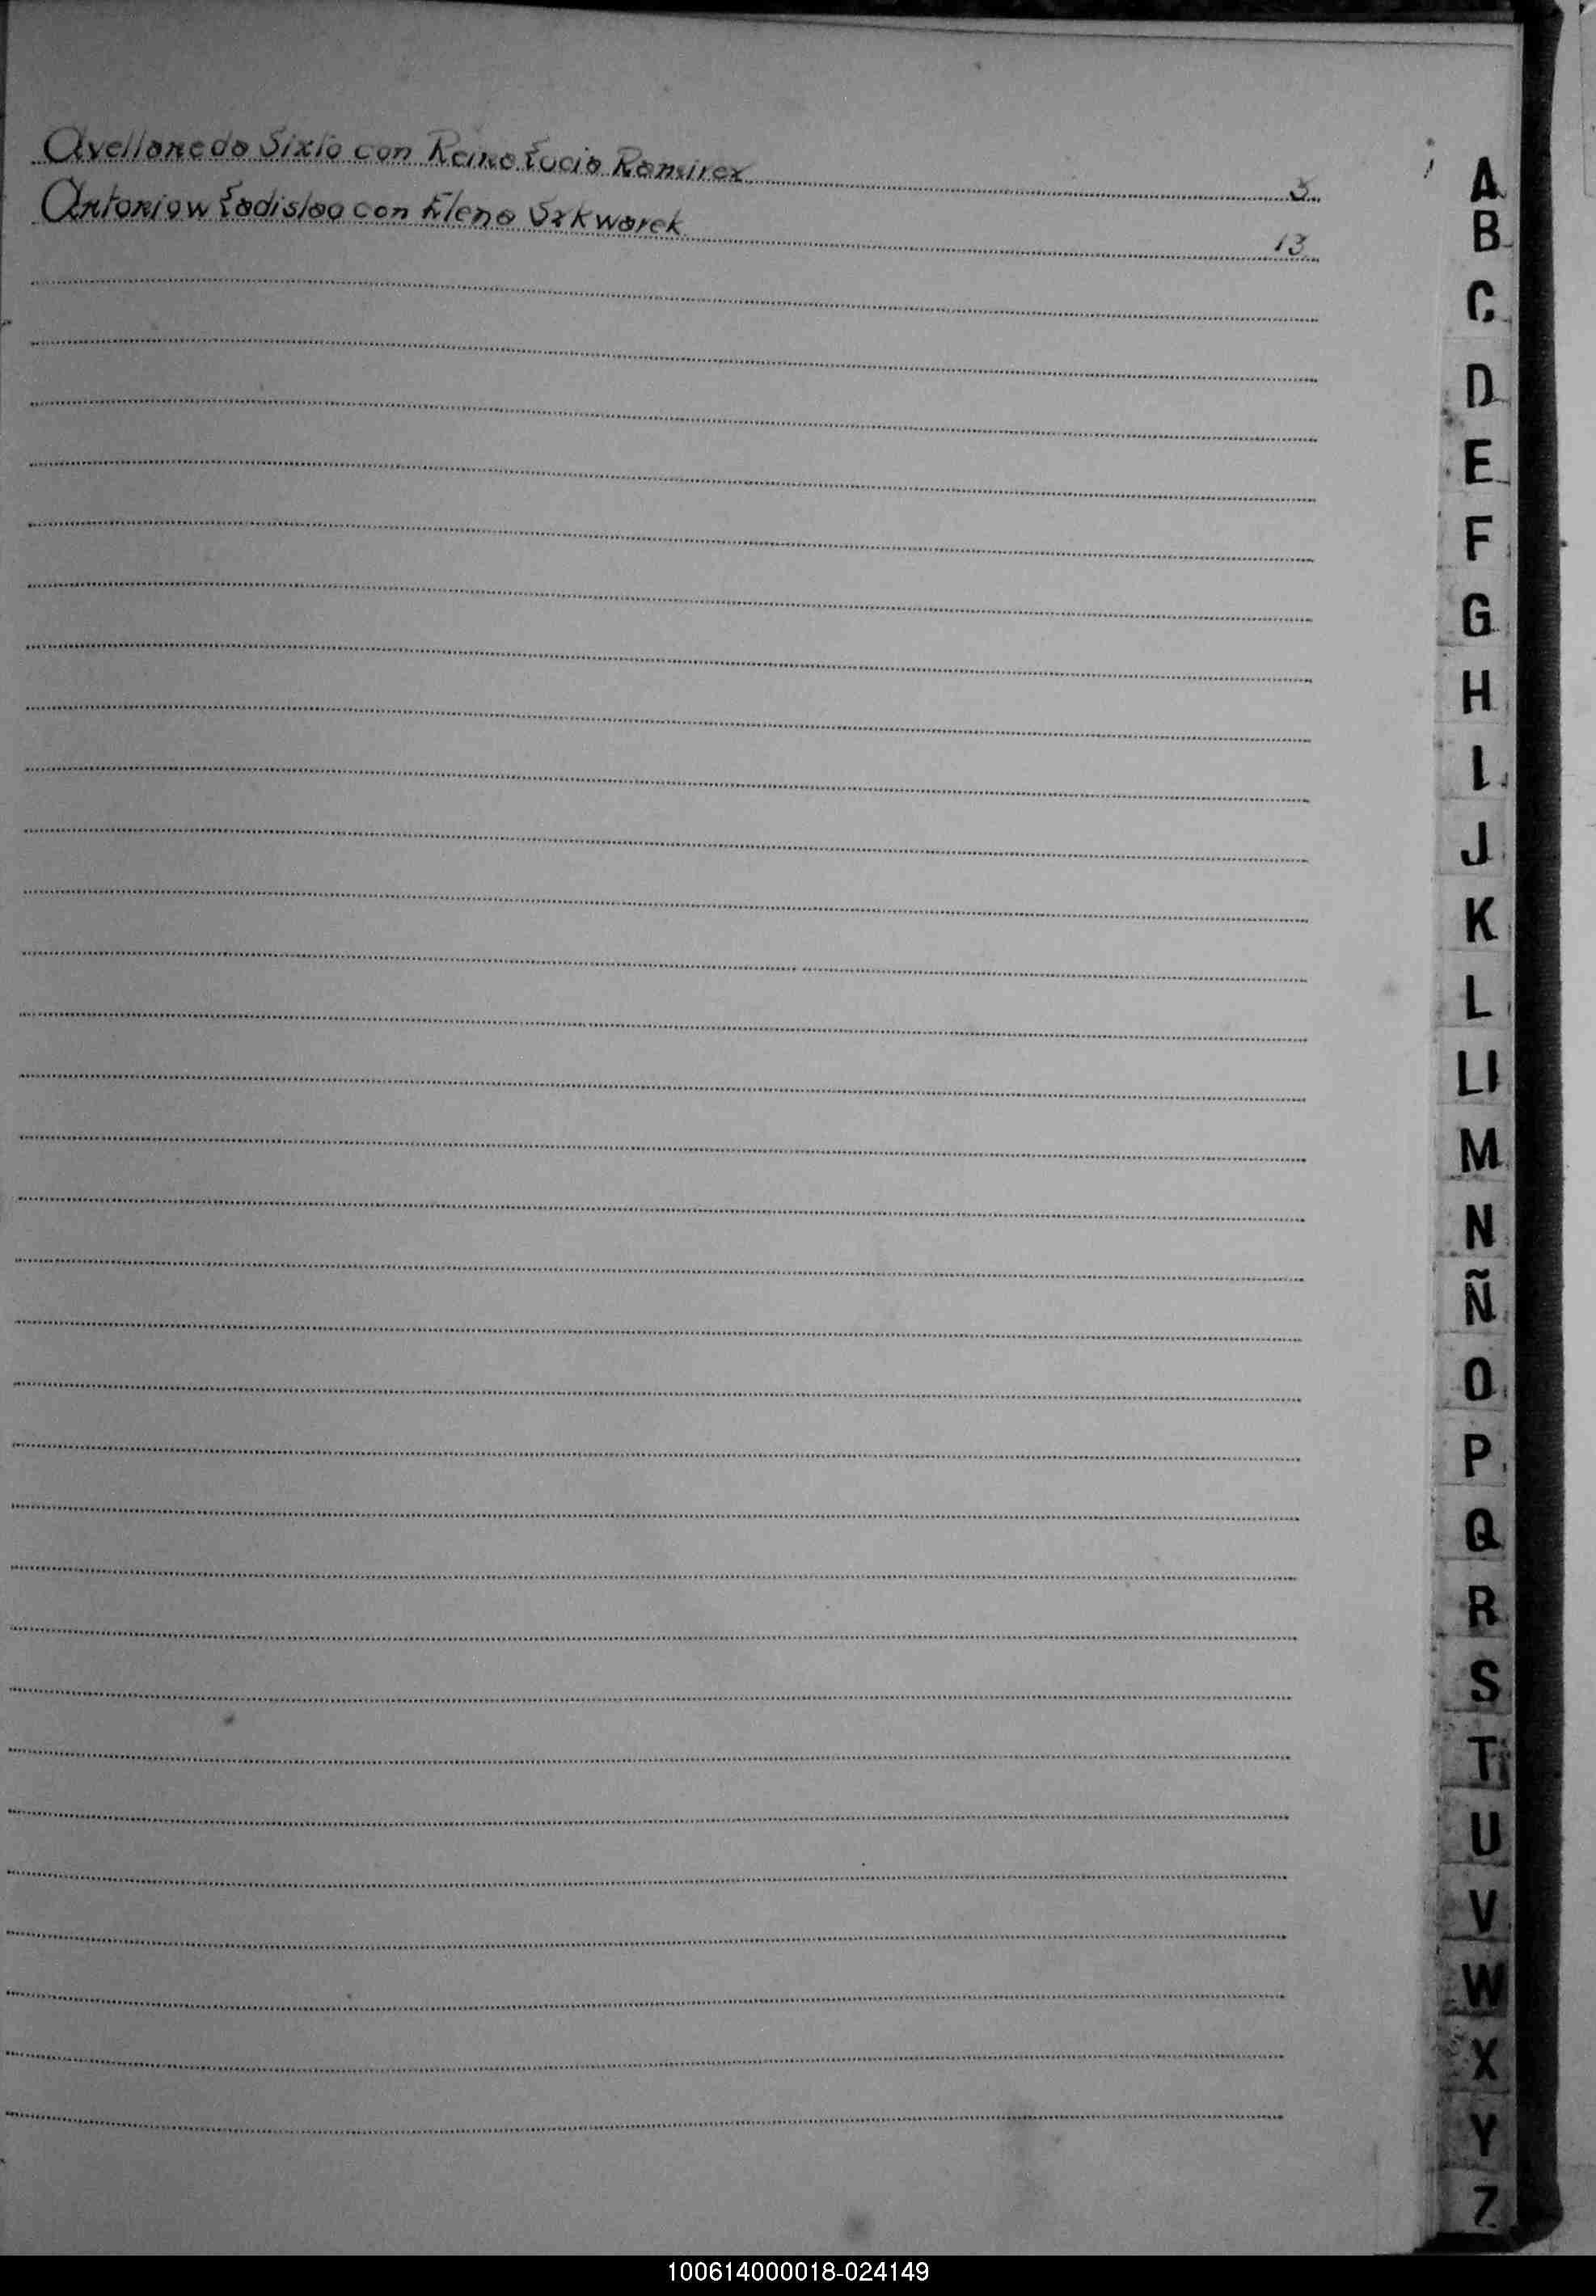 Avellaneda Sixto con Reina Lucia Ramirez 3
Antoniow Ladislao con Elena Szkwarek 13
A
B
C
D
E
F
G
H
I
J
K
L
Ll
M
N
Ñ
O
P
Q
R
S
T
U
V
W
X
Y
Z
100614000018-024149